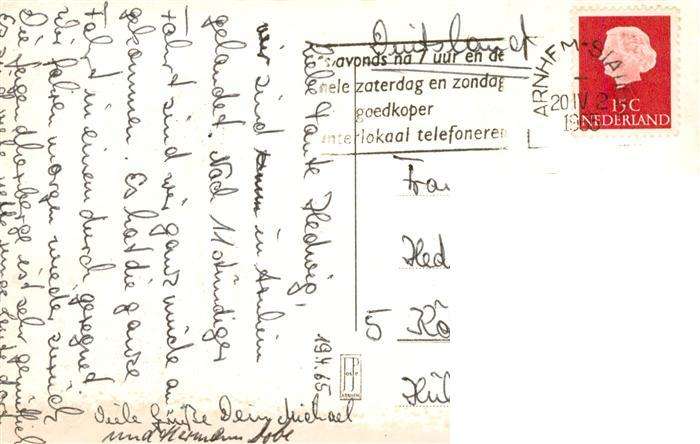 Duitsland
's avonds na 7 uur en de
hele zaterdag en zondag
goedkoper
interlokaal telefoneren
ARNHEM-STA
20 IV 2
15 C
NEDERLAND
19.4.65
Liebe Tante Hedwig,
wir sind in Arnheim
gelandet. Nach 11 stündiger
Fahrt sind wir ganz müde an
gekommen. Es hat die ganze
Fahrt in einem durch geregnet
Wir fahren morgen wieder zurück
Die Jugendherberge ist sehr gemütlich
Viele Grüße Dein Michael
und Hermann
Hed
5 Kö